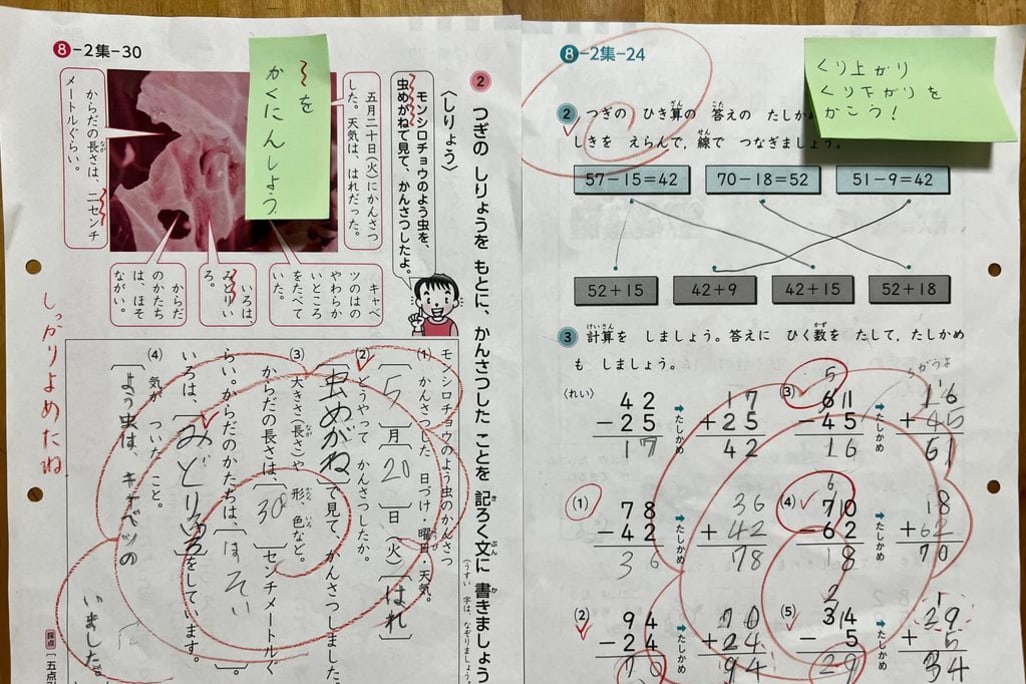 8-2集-30
〜を
かくにんしよう
2 つぎの しりょうを もとに、かんさつした ことを 記ろく文に 書きましょう
(うすい 字は、なぞりましょう
〈しりょう〉
モンシロチョウのよう虫を、
虫めがねで見て、かんさつしたよ。
五月二十日(火)にかんさつ
した。天気は、はれだった。
からだの長さは、二センチ
メートルぐらい。
キャベ
ツのはの
やわらか
いところ
をたべて
いた。
いろは、
みどりい
ろ。
からだ
のかたち
は、ほそ
ながい。
しっかりよめたね
モンシロチョウのよう虫のかんさつ
(1) かんさつした 日づけ・曜日・天気。
5月20日(火) はれ
(2) どうやって かんさつしたか。
虫めがねで見て、かんさつしました。
(3) 大きさ(長さ)や 形、色など。
からだの長さは、30センチメートルぐ
らい。からだのかたちは、ほそい。
いろは、みどりいろをしています。
(4) 気が ついた こと。
よう虫は、キャベツの
いました。
採点
五点
8-2集-24
くり上がり
くり下がりを
かこう!
2 つぎの ひき算の 答えの たしか
しきを えらんで、線で つなぎましょう。
57-15=42 70-18=52 51-9=42
52+15 42+9 42+15 52+18
3 計算を しましょう。答えに ひく数を たして、たしかめ
も しましょう。
(れい) 42 17 ③ 5 61 16
-25 たしかめ +25 -45 たしかめ +45
17 42 16 61
(1) 78 36 ④ 6 70 18
-42 たしかめ +42 -62 たしかめ +62
36 78 18 70
(2) 94 70 ⑤ 2 34 29
-24 たしかめ +24 -5 たしかめ +5
70 94 29 34